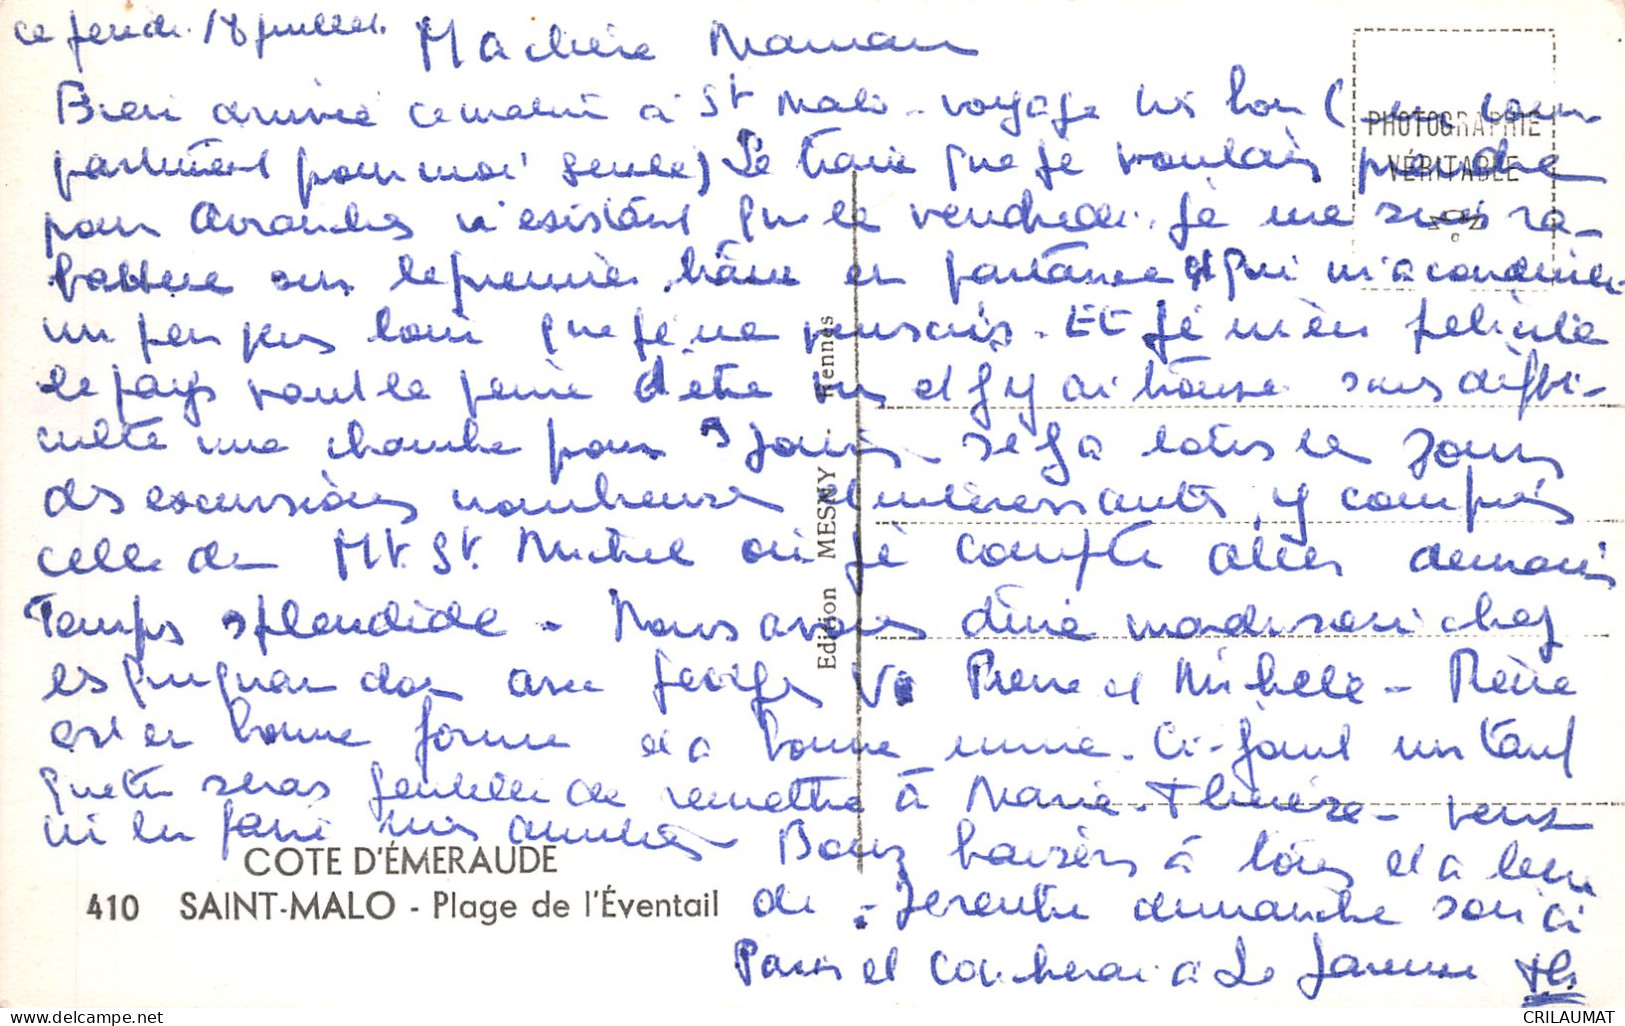 ce jeudi 18 juillet
Ma chère Maman
Bien arrivée ce matin à St Malo - voyage très bon (un com
partiment pour moi seule) Le train que je voulais prendre
pour Avranches n'existant que le vendredi. Je me suis ra-
battue sur le premier train en partance et qui m'a conduite
un peu plus loin que je ne pensais. Et je m'en félicite
le pays vaut la peine d'être vu et j'y ai trouvé sans diffi-
culté une chambre pour 3 jours - Il y a tous les jours
des excursions nombreuses et intéressantes, y compris
celle du Mt. St. Michel où je compte aller demain
Temps splendide - Nous avons dîné mardi soir chez
les avec Georges Pierre et Michèle -
est en bonne forme et a bonne mine. Ci-joint un
que tu seras gentille de remettre à Marie-Thérèse -
Bons baisers à tous et à
Je rentre dimanche soir à
Paris et coucherai à La Garenne
Th.
PHOTOGRAPHIE
VÉRITABLE
Edition MESNY - Rennes
COTE D'ÉMERAUDE
410 SAINT-MALO - Plage de l'Éventail
delcampe.net
CRILAUMAT